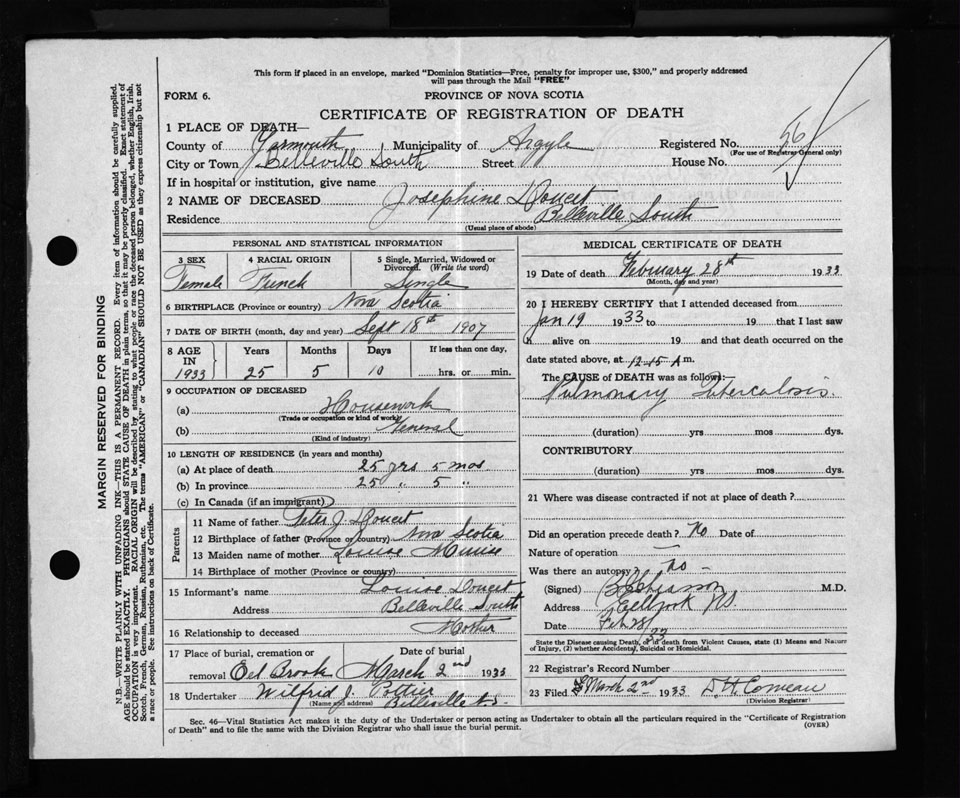 This form if placed in an envelope, marked "Dominion Statistics—Free, penalty for improper use, $300," and properly addressed
will pass through the Mail "FREE"
FORM 6.
PROVINCE OF NOVA SCOTIA
CERTIFICATE OF REGISTRATION OF DEATH
1 PLACE OF DEATH—
County of Yarmouth Municipality of Argyle Registered No. 56
(For use of Registrar General only)
City or Town Belleville South Street House No.
If in hospital or institution, give name
2 NAME OF DECEASED Josephine Doucet
Residence Belleville South
(Usual place of abode)
MARGIN RESERVED FOR BINDING
N.B.—WRITE PLAINLY WITH UNFADING INK—THIS IS A PERMANENT RECORD. Every item of information should be carefully supplied.
AGE should be stated EXACTLY. PHYSICIANS should STATE CAUSE OF DEATH in plain terms, so that it may be properly classified. Exact statement of
OCCUPATION is very important. RACIAL ORIGIN will be described by stating to what people or race the deceased person belonged, whether English, Irish,
Scotch, French, German, Russian, Ruthenian, etc. The terms "AMERICAN" or "CANADIAN" SHOULD NOT BE USED as they express citizenship but not
a race or people. See instructions on back of Certificate.
PERSONAL AND STATISTICAL INFORMATION
3 SEX
Female
4 RACIAL ORIGIN
French
5 Single, Married, Widowed or
Divorced. (Write the word)
Single
6 BIRTHPLACE (Province or country) Nova Scotia
7 DATE OF BIRTH (month, day and year) Sept 18th 1907
8 AGE IN 1933
Years Months Days If less than one day,
25 5 10 hrs. or min.
9 OCCUPATION OF DECEASED
(a) Housework
(Trade or occupation or kind of work)
(b) General
(Kind of industry)
10 LENGTH OF RESIDENCE (in years and months)
(a) At place of death 25 yrs 5 mos
(b) In province 25 " 5 "
(c) In Canada (if an immigrant)
Parents
11 Name of father Peter J. Doucet
12 Birthplace of father (Province or country) Nova Scotia
13 Maiden name of mother Louise Muise
14 Birthplace of mother (Province or country)
15 Informant's name Louise Doucet
Address Belleville South
16 Relationship to deceased Mother
17 Place of burial, cremation or Date of burial
removal Eel Brook March 2nd 1933
18 Undertaker Wilfrid J. Pottier
(Name and address) Belleville N.S.
MEDICAL CERTIFICATE OF DEATH
19 Date of death February 28th 1933
(Month, day and year)
20 I HEREBY CERTIFY that I attended deceased from
Jan 19 1933 to 19 that I last saw
h alive on 19 and that death occurred on the
date stated above, at 12.15 A m.
The CAUSE of DEATH was as follows:
Pulmonary Tuberculosis.
(duration) yrs mos dys.
CONTRIBUTORY
(duration) yrs mos dys.
21 Where was disease contracted if not at place of death?
Did an operation precede death? No Date of
Nature of operation —
Was there an autopsy? no —
(Signed) M.D.
Address Eelbrook NS.
Date Feb 28/33
State the Disease causing Death, or if death from Violent Causes, state (1) Means and Nature
of Injury, (2) whether Accidental, Suicidal or Homicidal.
22 Registrar's Record Number
23 Filed March 2nd 1933 Comeau
(Division Registrar)
Sec. 46—Vital Statistics Act makes it the duty of the Undertaker or person acting as Undertaker to obtain all the particulars required in the "Certificate of Registration
of Death" and to file the same with the Division Registrar who shall issue the burial permit.
(OVER)